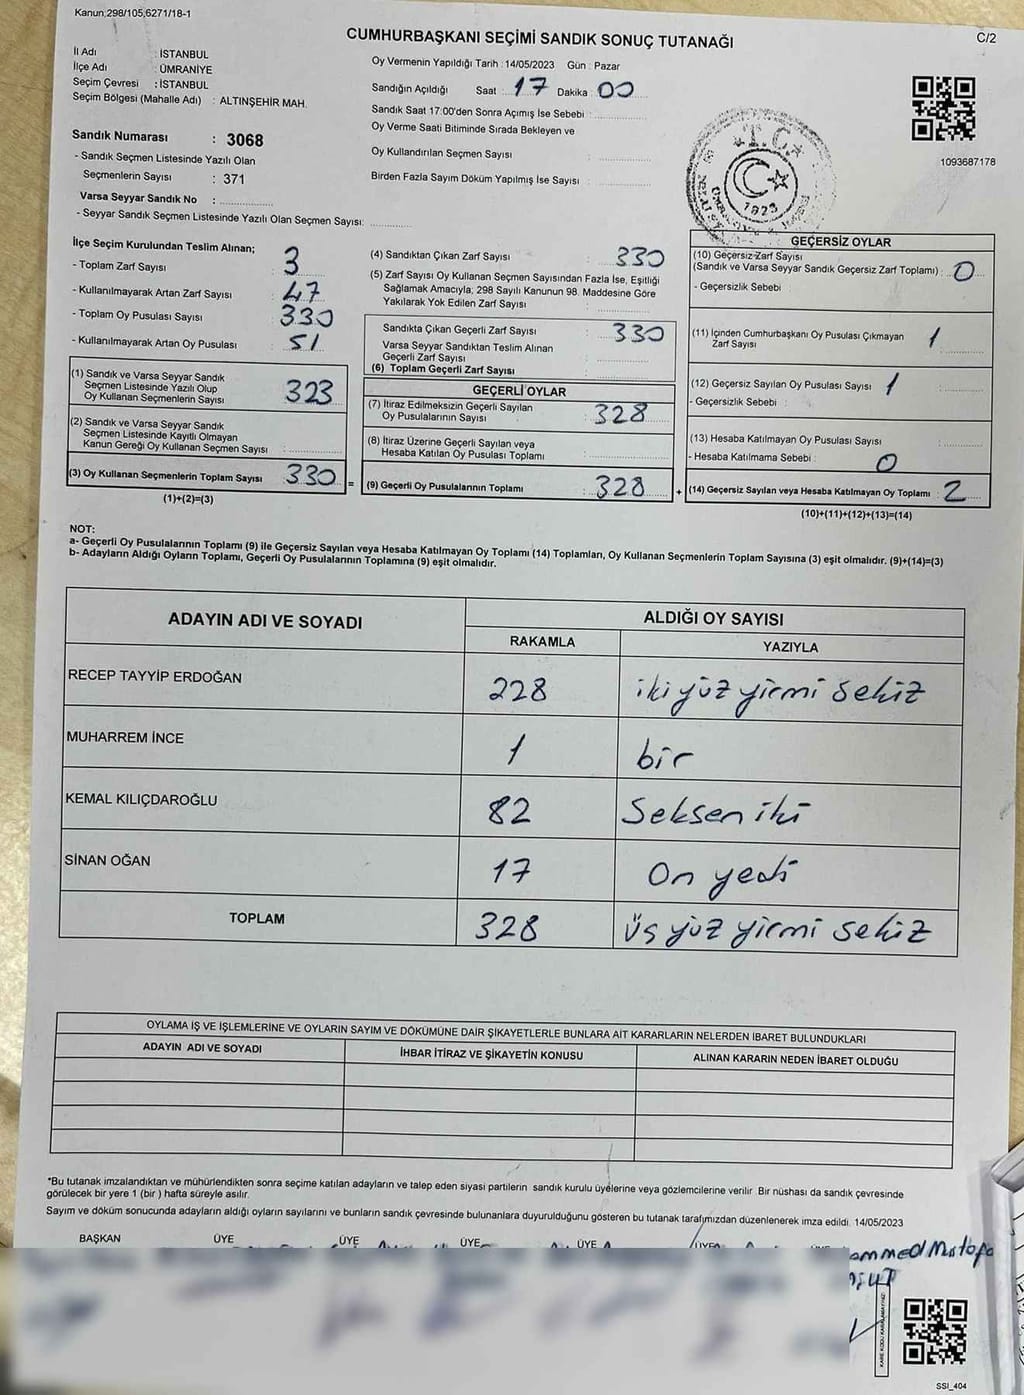 Kanun,298/105,6271/18-1
C/2
CUMHURBAŞKANI SEÇİMİ SANDIK SONUÇ TUTANAĞI
İl Adı : İSTANBUL
İlçe Adı : ÜMRANİYE
Seçim Çevresi : İSTANBUL
Seçim Bölgesi (Mahalle Adı) : ALTINŞEHİR MAH.
Sandık Numarası : 3068
- Sandık Seçmen Listesinde Yazılı Olan
Seçmenlerin Sayısı : 371
Varsa Seyyar Sandık No :
- Seyyar Sandık Seçmen Listesinde Yazılı Olan Seçmen Sayısı:
Oy Vermenin Yapıldığı Tarih : 14/05/2023 Gün : Pazar
Sandığın Açıldığı Saat : 17 Dakika : 00
Sandık Saat 17:00'den Sonra Açımış İse Sebebi :
Oy Verme Saati Bitiminde Sırada Bekleyen ve
Oy Kullandırılan Seçmen Sayısı :
Birden Fazla Sayım Döküm Yapılmış İse Sayısı :
T.C.
1923
1093687178
İlçe Seçim Kurulundan Teslim Alınan;
- Toplam Zarf Sayısı : 3
- Kullanılmayarak Artan Zarf Sayısı : 47
- Toplam Oy Pusulası Sayısı : 330
- Kullanılmayarak Artan Oy Pusulası : 51
(1) Sandık ve Varsa Seyyar Sandık
Seçmen Listesinde Yazılı Olup
Oy Kullanan Seçmenlerin Sayısı : 323
(2) Sandık ve Varsa Seyyar Sandık
Seçmen Listesinde Kayıtlı Olmayan
Kanun Gereği Oy Kullanan Seçmen Sayısı :
(3) Oy Kullanan Seçmenlerin Toplam Sayısı : 330 =
(1)+(2)=(3)
(4) Sandıktan Çıkan Zarf Sayısı : 330
(5) Zarf Sayısı Oy Kullanan Seçmen Sayısından Fazla İse, Eşitliği
Sağlamak Amacıyla; 298 Sayılı Kanunun 98. Maddesine Göre
Yakılarak Yok Edilen Zarf Sayısı :
Sandıkta Çıkan Geçerli Zarf Sayısı : 330
Varsa Seyyar Sandıktan Teslim Alınan
Geçerli Zarf Sayısı :
(6) Toplam Geçerli Zarf Sayısı :
GEÇERLİ OYLAR
(7) İtiraz Edilmeksizin Geçerli Sayılan
Oy Pusulalarının Sayısı : 328
(8) İtiraz Üzerine Geçerli Sayılan veya
Hesaba Katılan Oy Pusulası Toplamı :
(9) Geçerli Oy Pusulalarının Toplamı : 328 +
GEÇERSİZ OYLAR
(10) Geçersiz Zarf Sayısı
(Sandık ve Varsa Seyyar Sandık Geçersiz Zarf Toplamı) : 0
- Geçersizlik Sebebi :
(11) İçinden Cumhurbaşkanı Oy Pusulası Çıkmayan
Zarf Sayısı : 1
(12) Geçersiz Sayılan Oy Pusulası Sayısı : 1
- Geçersizlik Sebebi :
(13) Hesaba Katılmayan Oy Pusulası Sayısı :
- Hesaba Katılmama Sebebi : 0
(14) Geçersiz Sayılan veya Hesaba Katılmayan Oy Toplamı : 2
(10)+(11)+(12)+(13)=(14)
NOT:
a- Geçerli Oy Pusulalarının Toplamı (9) ile Geçersiz Sayılan veya Hesaba Katılmayan Oy Toplamı (14) Toplamları, Oy Kullanan Seçmenlerin Toplam Sayısına (3) eşit olmalıdır. (9)+(14)=(3)
b- Adayların Aldığı Oyların Toplamı, Geçerli Oy Pusulalarının Toplamına (9) eşit olmalıdır.
ADAYIN ADI VE SOYADI
ALDIĞI OY SAYISI
RAKAMLA YAZIYLA
RECEP TAYYİP ERDOĞAN 228 iki yüz yirmi sekiz
MUHARREM İNCE 1 bir
KEMAL KILIÇDAROĞLU 82 Seksen iki
SİNAN OĞAN 17 On yedi
TOPLAM 328 üç yüz yirmi sekiz
OYLAMA İŞ VE İŞLEMLERİNE VE OYLARIN SAYIM VE DÖKÜMÜNE DAİR ŞİKAYETLERLE BUNLARA AİT KARARLARIN NELERDEN İBARET BULUNDUKLARI
ADAYIN ADI VE SOYADI İHBAR İTİRAZ VE ŞİKAYETİN KONUSU ALINAN KARARIN NEDEN İBARET OLDUĞU
*Bu tutanak imzalandıktan ve mühürlendikten sonra seçime katılan adayların ve talep eden siyasi partilerin sandık kurulu üyelerine veya gözlemcilerine verilir. Bir nüshası da sandık çevresinde
görülecek bir yere 1 (bir) hafta süreyle asılır.
Sayım ve döküm sonucunda adayların aldığı oyların sayılarını ve bunların sandık çevresinde bulunanlara duyurulduğunu gösteren bu tutanak tarafımızdan düzenlenerek imza edildi. 14/05/2023
BAŞKAN ÜYE ÜYE ÜYE ÜYE ÜYE
SSI_404